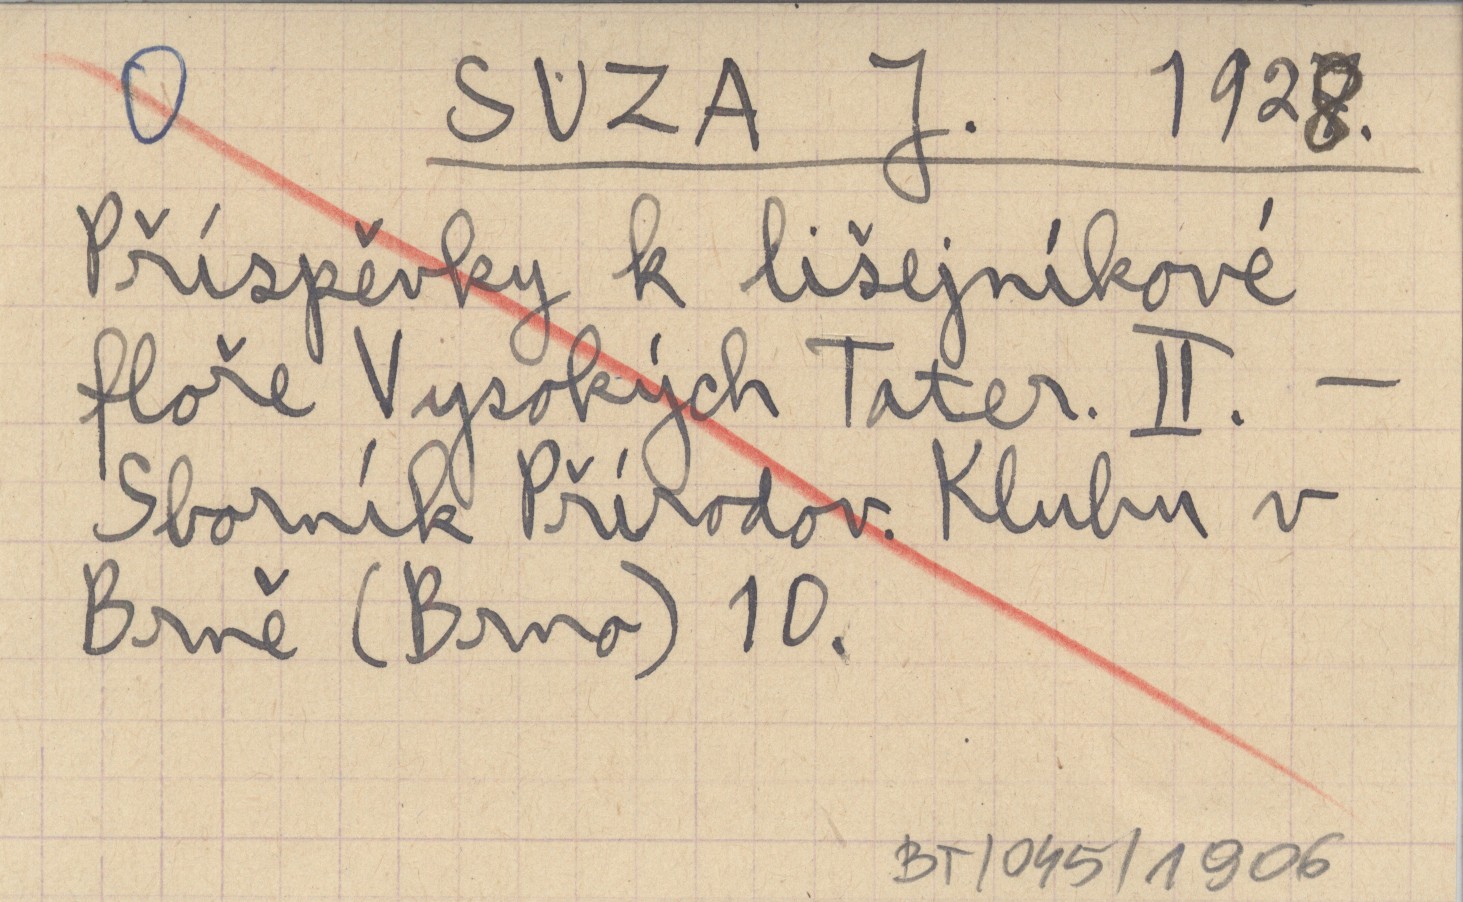 O SUZA J. 1928.
Příspěvky k lišejníkové
floře Vysokých Tater. II. –
Sborník Přírodov. Klubu v
Brně (Brno) 10.
BT/045/1906